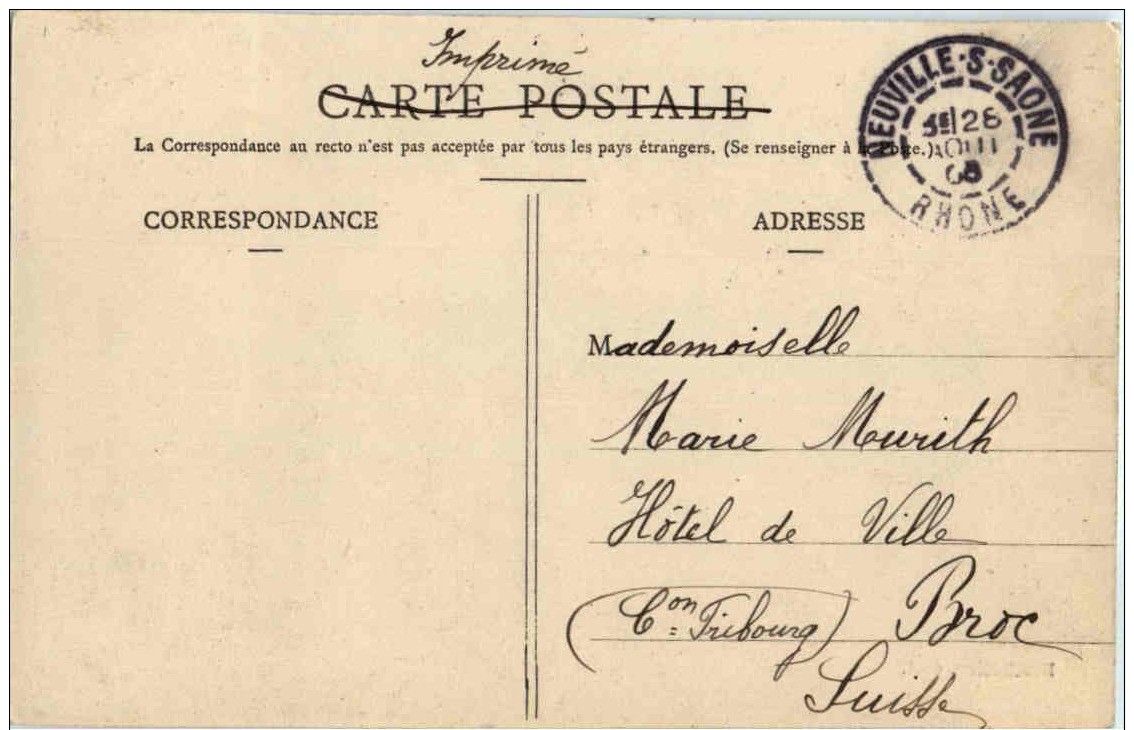 Imprimé
CARTE POSTALE
La Correspondance au recto n'est pas acceptée par tous les pays étrangers. (Se renseigner à la Poste.)
NEUVILLE-S-SAONE
28
RHONE
CORRESPONDANCE
ADRESSE
Mademoiselle
Marie Murith
Hôtel de Ville
(Con Fribourg) Broc
Suisse